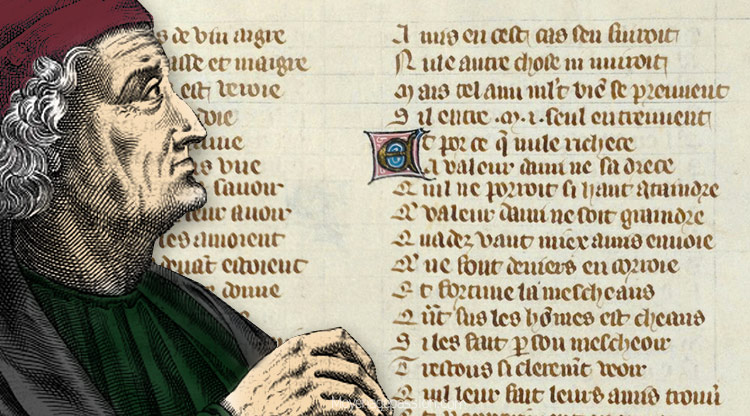 s de vin aigre
asse et maigre
est veroie
vue
savoir
leur avoir
les amoient
estoient
donne
Amis en cest cas sen fuiroit
Nule autre chose ni nuiroit
Mais cel ami mlt vie se preuvent
Sil entre .m.i. seul en treuvent
Et por ce q̄ nule richece
A valeur dami ne sadrece
Quil ne porroit si haut ataindre
Q̄ valeur dami ne soit graindre
Quadez vaut miex amis en voie
Q̄ ne font deniers en corroie
Et fortune la mescheans
Qn̄t sus les hōmes est cheans
Si les fait p son mescheoir
Trestous si clerem̄t veoir
Quil leur fait leurs amis trouv